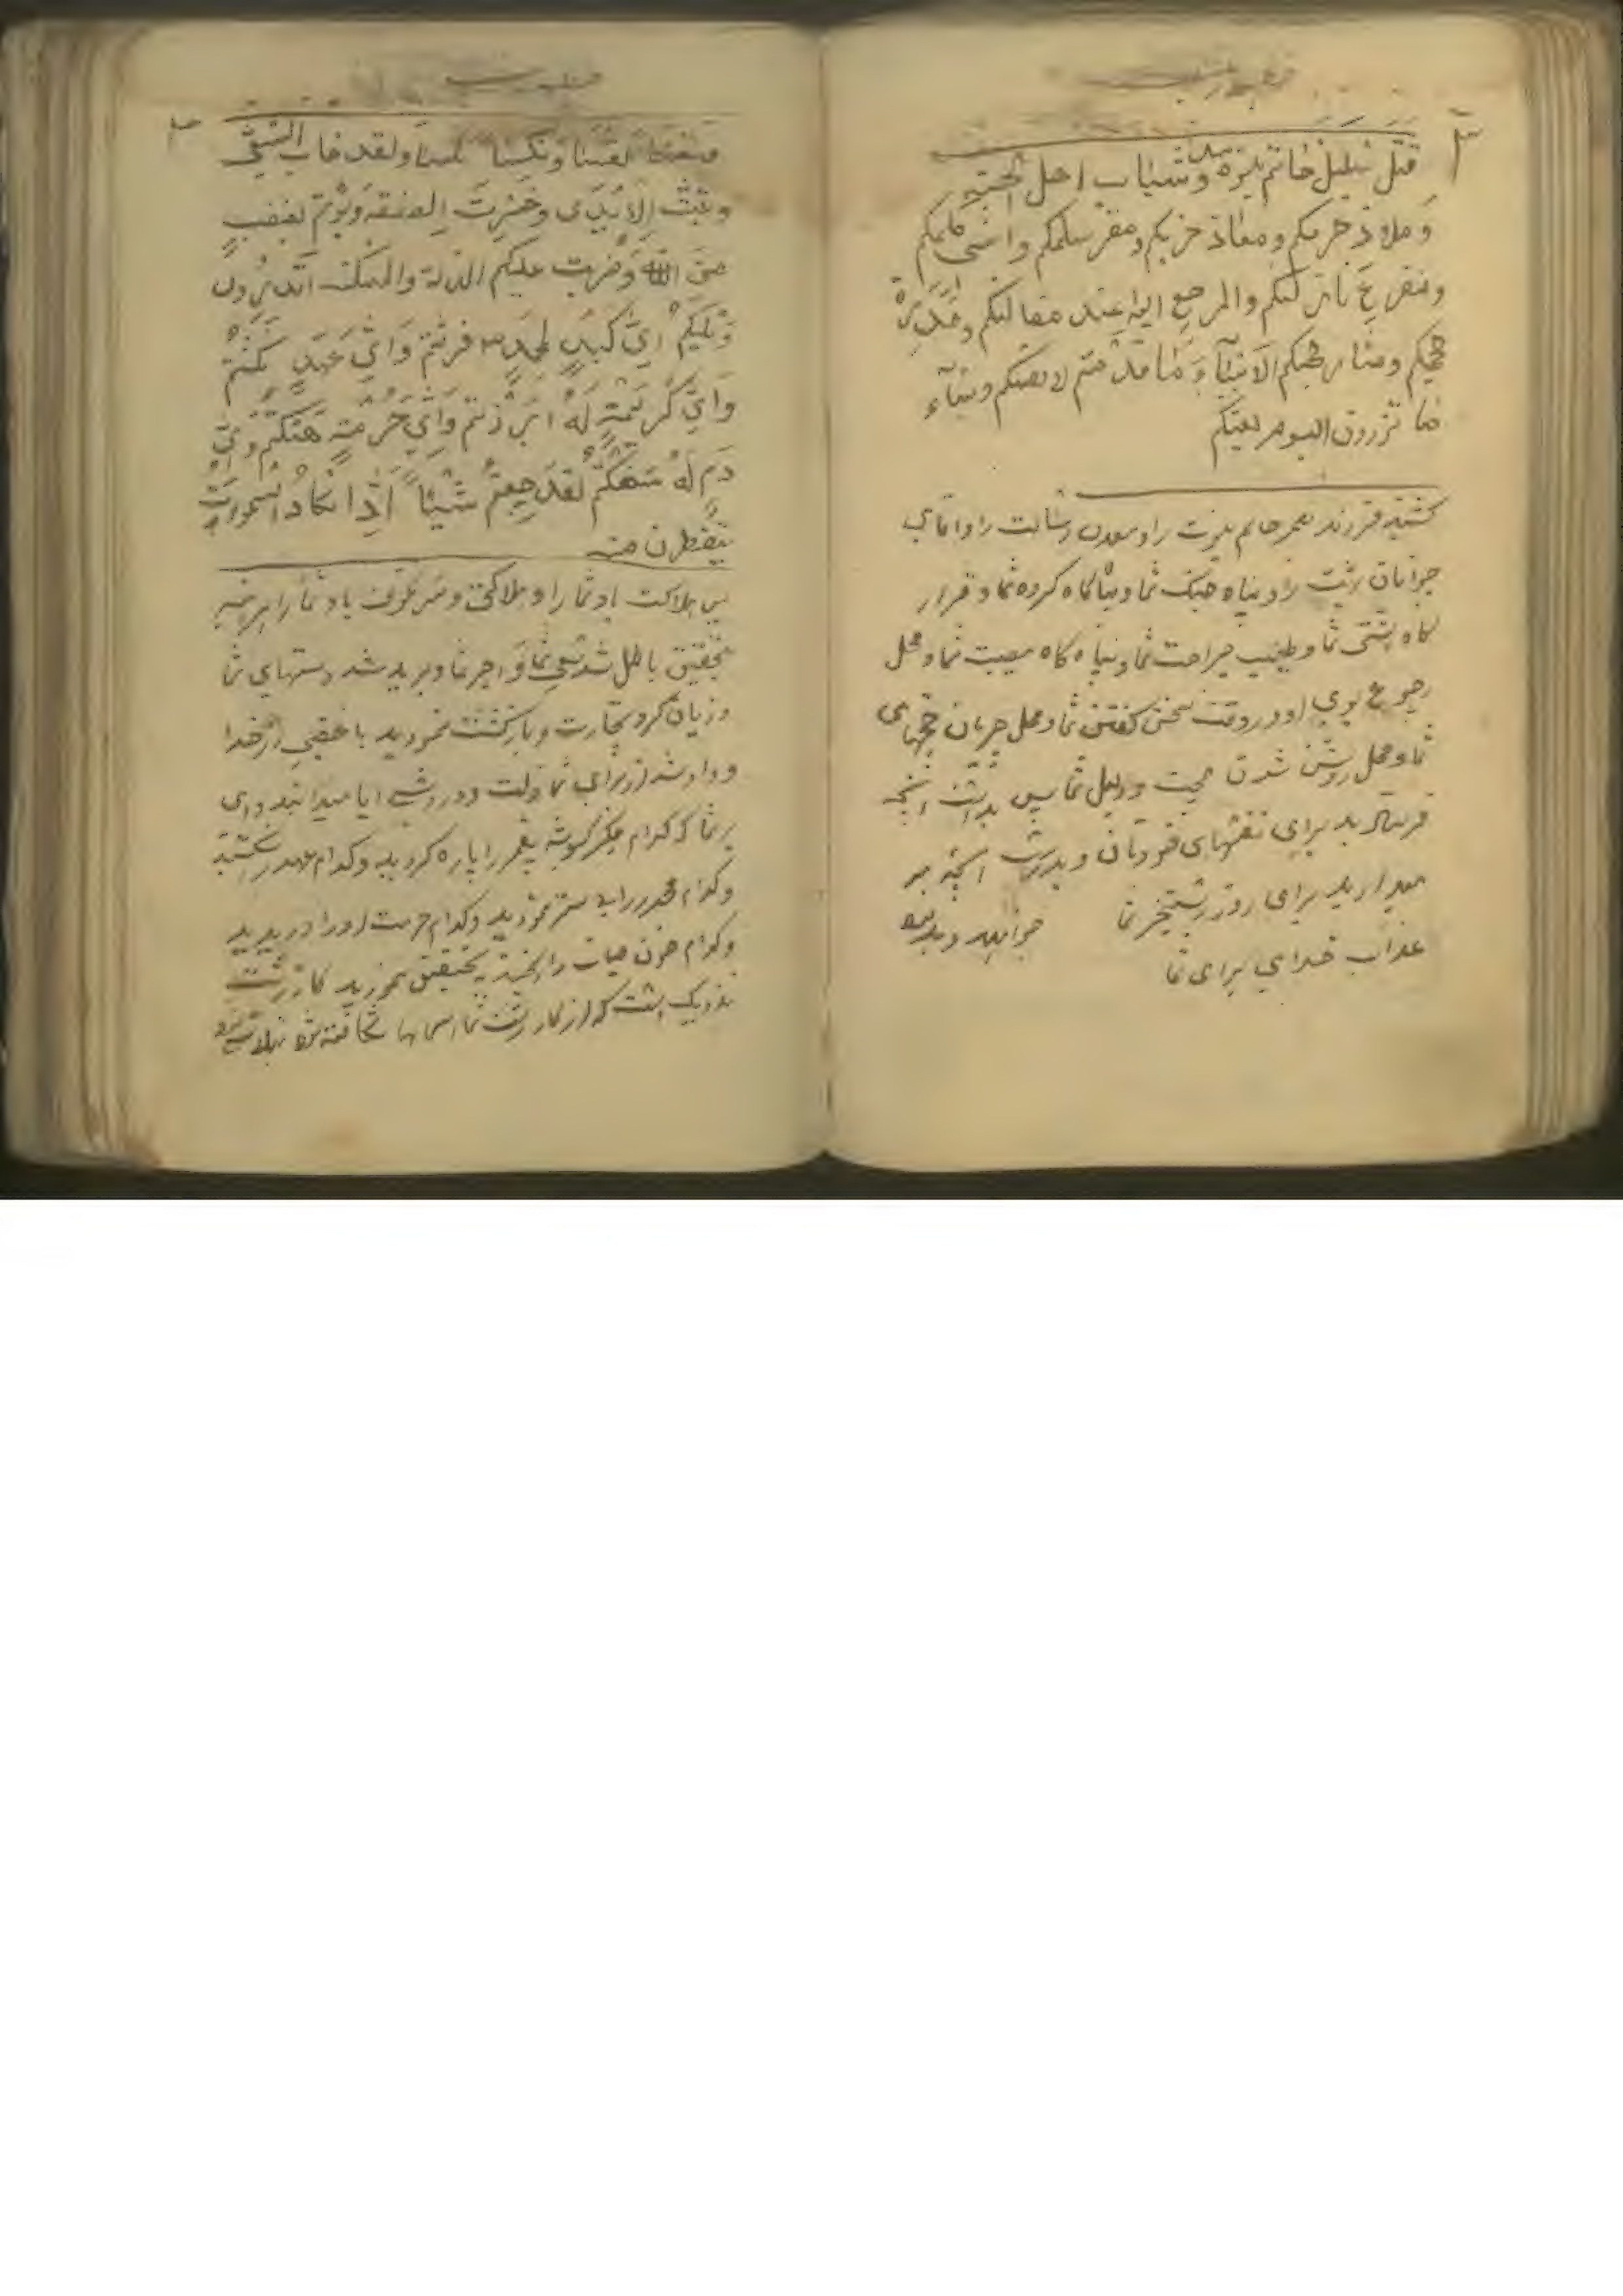 قتل سلیل خاتم النبوة و شباب اهل الجنة
وملاذ حربکم ومعاذ حزبکم ومقر سلمکم واسی کلمکم
ومفزع نازلتکم والمرجع الیه عند مقالتکم ومدرة
حججکم ومنار محجتکم الا ساء ما قدمتم لانفسکم وساء
ما تزرون الیوم بعثکم
کشتید فرزند خاتم نبوت را ومعدن رسالت را واقای
جوانان بهشت را و پناه جنگ شما و پناه گاه کروه شما و قرار
کاه اشتی شما و طبیب جراحت شما و پناه کاه مصیبت شما و محل
رجوع بوی او در وقت سخن کفتن شما و محل جریان حجتهای
شما و محل روشن شدن حجت و دلیل شما پس بد است انچه
فرستادید برای نفسهای خودتان و بد است انچه بر
میدارید برای روز رستخیز شما
عذاب خدای برای شما
ونکسا ولقد خاب السعی
وتبت الایدی وخسرت الصفقة وبؤتم بغضب
من الله وضربت علیکم الذلة والمسکنة اتدرون
ویلکم ای کبد لمحمد فریتم وای عهد نکثتم
وای کریمة له ابرزتم وای حرمة هتکتم وای
دم له سفکتم لقد جئتم شیئا ادا تکاد السموات
یتفطرن منه
پس هلاکت باد شما را و هلاکتی و سر نکون باد شما را
بتحقیق باطل شد سعی شما و اجر شما و برید شد دستهای شما
و زیان کرد تجارت و بازکشت نمودید با غضبی از خدا
و داد شد از برای شما ذلت و درویشی ایا میدانید وای
بر شما که کدام جکر کوشه پیغمبر را پاره کردید و کدام عهد شکستید
و کدام را نمودید و کدام حرمت او را دریدید
و کدام خون را ریختید بتحقیق نمودید کار
نزدیک است که از کار زشت شما اسمانها شکافته شود